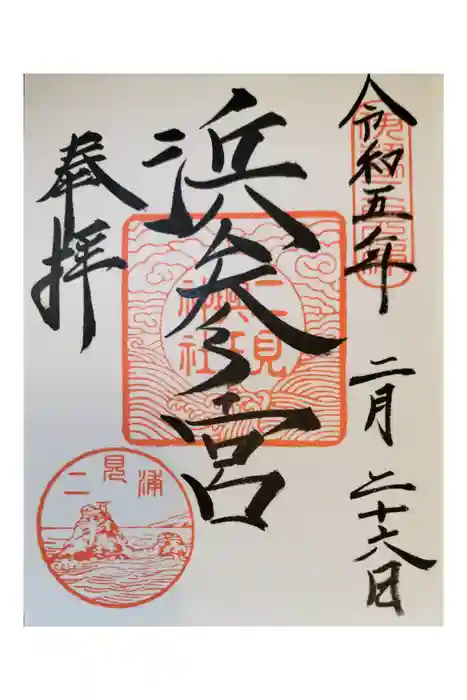 令和五年 二月二十六日
浜参宮
奉拝
二見
興玉
神社
二見浦